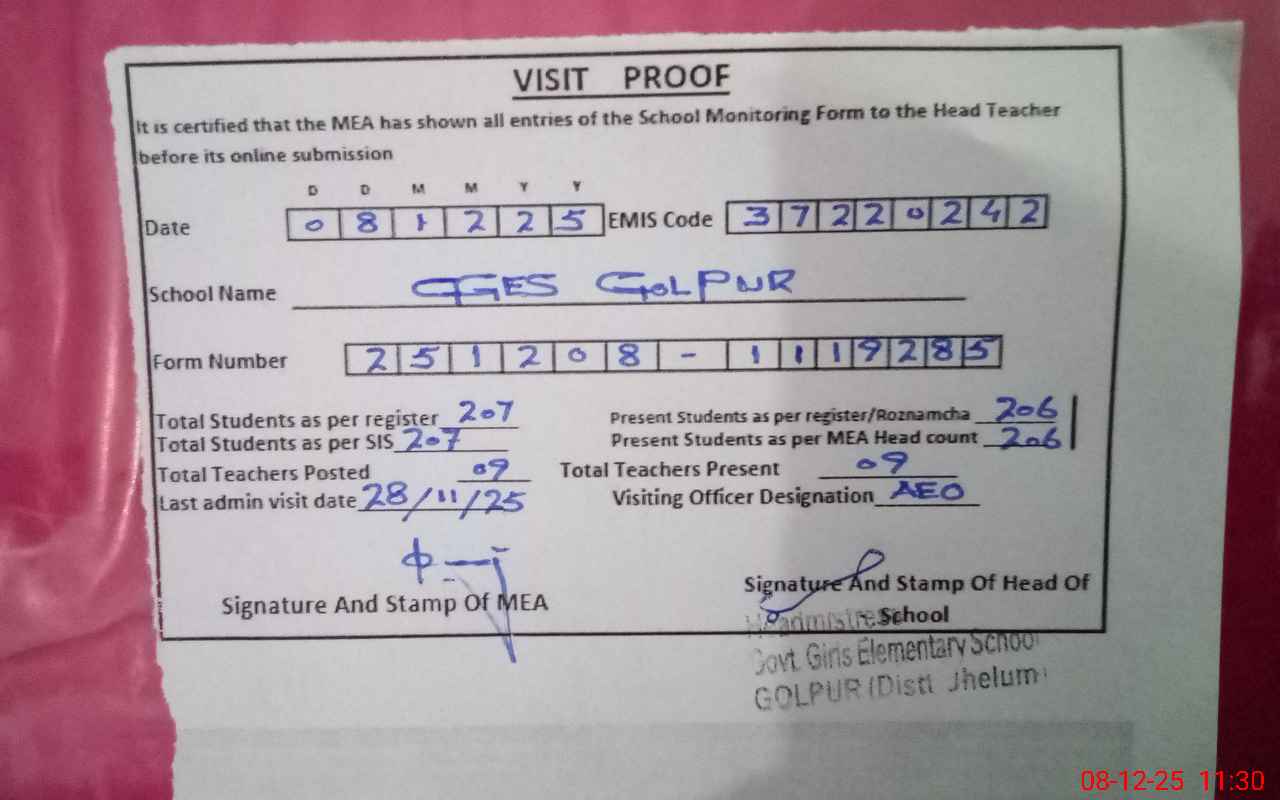 VISIT PROOF
It is certified that the MEA has shown all entries of the School Monitoring Form to the Head Teacher
before its online submission
D D M M Y Y
Date 0 8 1 2 2 5 EMIS Code 3 7 2 2 0 2 4 2
School Name GGES GOLPUR
Form Number 2 5 1 2 0 8 - 1 1 1 9 2 8 5
Total Students as per register 207 Present Students as per register/Roznamcha 206
Total Students as per SIS 207 Present Students as per MEA Head count 206
Total Teachers Posted 09 Total Teachers Present 09
Last admin visit date 28/11/25 Visiting Officer Designation AEO
Signature And Stamp Of MEA
Signature And Stamp Of Head Of
School
Headmistress
Govt. Girls Elementary School
GOLPUR (Distt Jhelum)
08-12-25 11:30